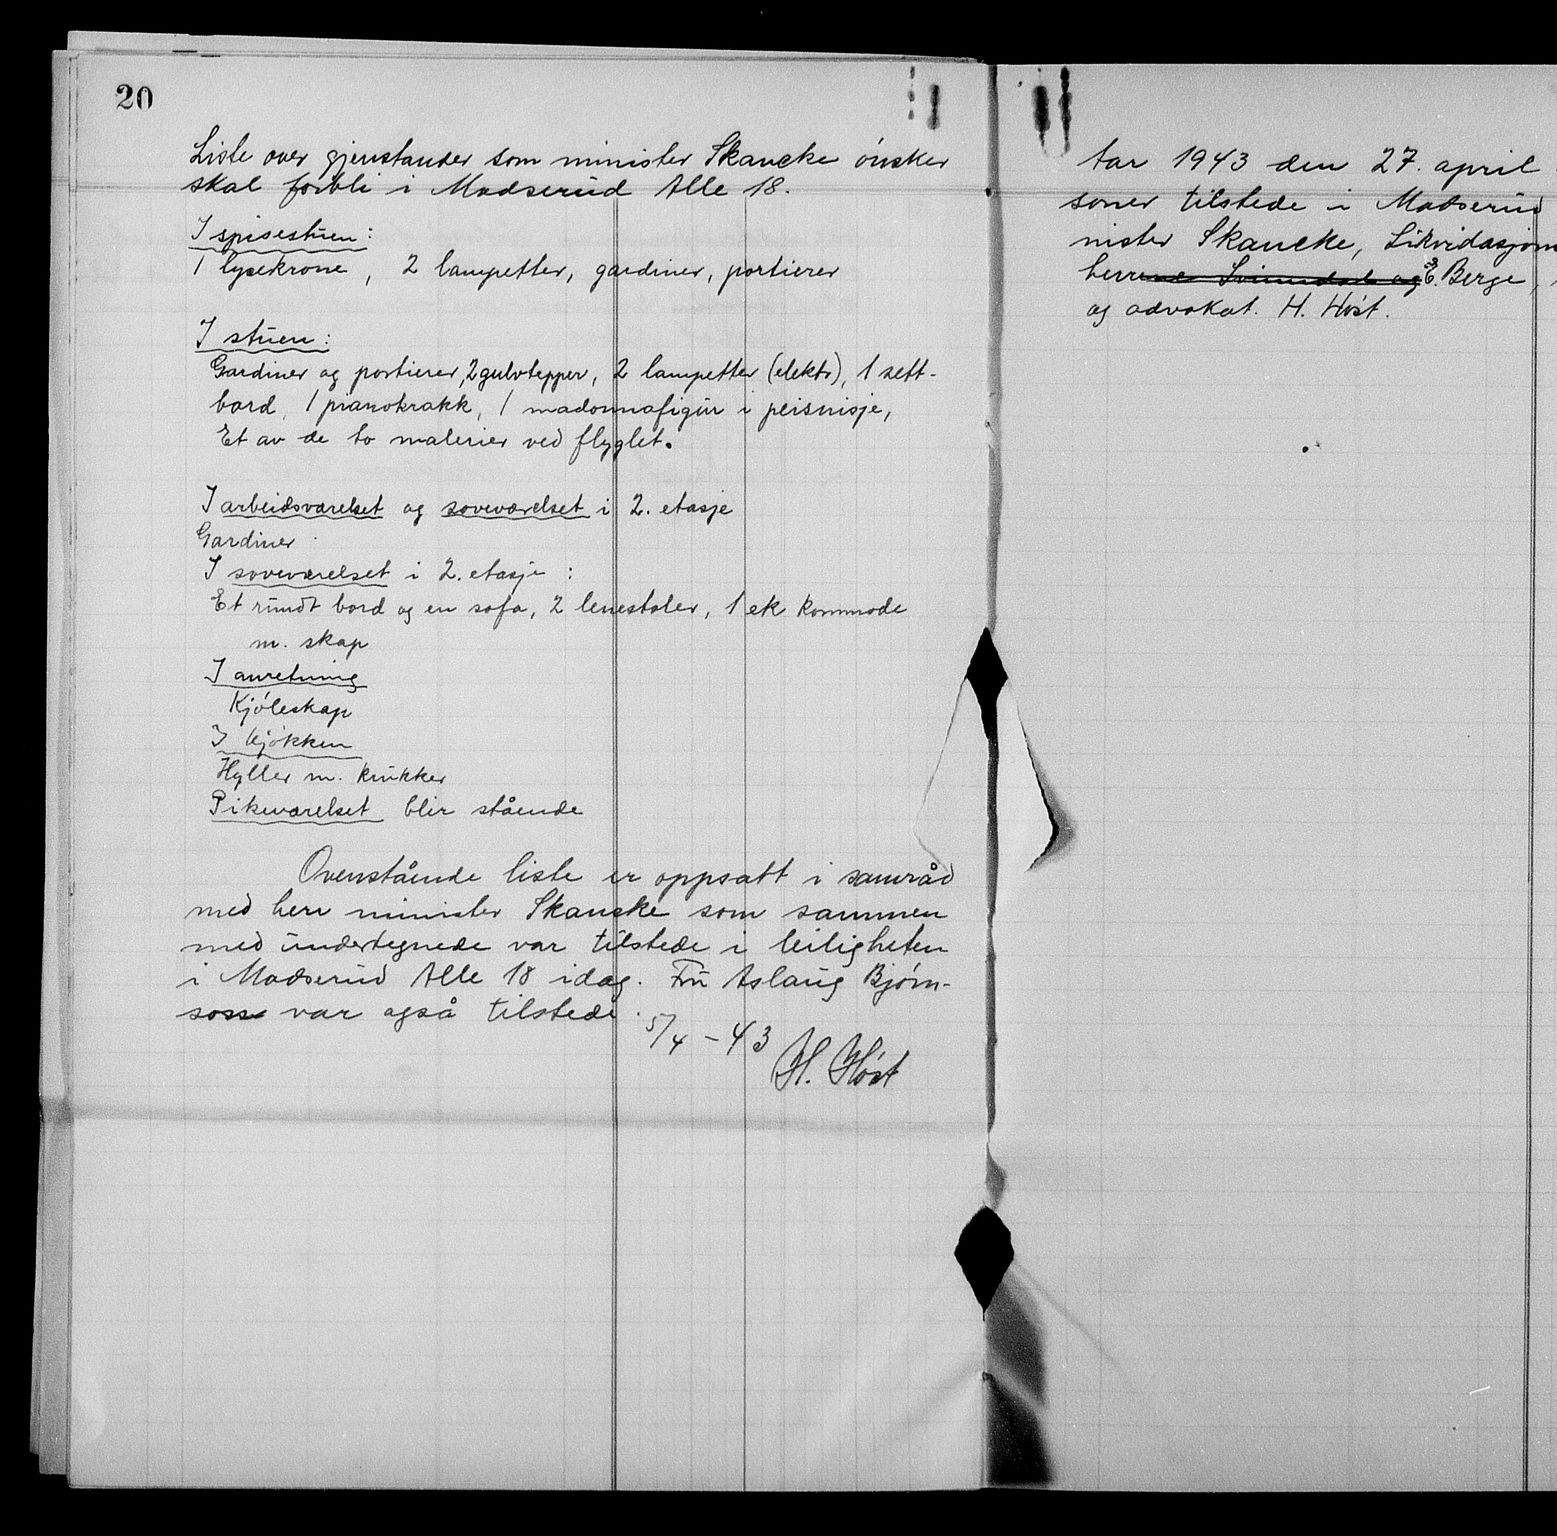 20
Liste over gjenstander som minister Skancke ønsker
skal forbli i Madserud Alle 18.
I spisestuen:
1 lysekrone, 2 lampetter, gardiner, portierer
I stuen:
Gardiner og portierer, 2 gulvtepper, 2 lampetter (elektr), 1 sett-
bord, 1 pianokrakk, 1 madonnafigur i peisnisje,
Et av de to malerier ved flyglet.
I arbeidsværelset og soveværelset i 2. etasje
Gardiner
I soveværelset i 2. etasje :
Et rundt bord og en sofa, 2 lenestoler, 1 ek kommode
m. skap
I anretning
Kjøleskap
I kjøkken
Hyller m. krukker
Pikeværelset blir stående
Ovenstående liste er oppsatt i samråd
med herr minister Skancke som sammen
med undertegnede var tilstede i leiligheten
i Madserud Alle 18 idag. Fru Aslaug Bjørn-
son var også tilstede.
5/4 - 43
H. Høst
Aar 1943 den 27. april
soner tilstede i Madserud
nister Skancke, Likvidasjons
herrene Svinndal og E. Berge,
og advokat H. Høst.